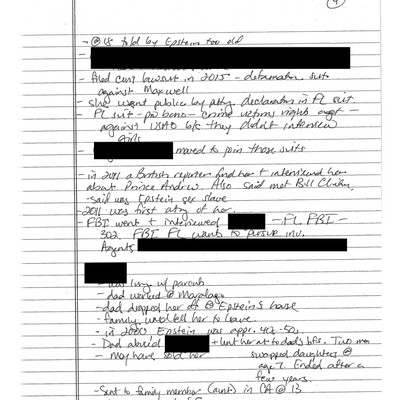 4
- @ 18 told by Epstein too old
-
- filed civil lawsuit in 2015 - defamation suit
against Maxwell
- She went public by atty declaration in FL suit.
- FL suit - pro bono - crime victims rights -
against USAO b/c they didn't interview
girls
moved to join those suits
- in 2011 a British reporter found her + interviewed her
about Prince Andrew. Also said met Bill Clinton,
- said was Epstein sex slave
- 2011 was first of her.
- FBI went + interviewed - FL FBI -
302. FBI FL wants to pursue inv.
Agents
- was living w/ parents
- dad worked @ Maralago
- dad dropped her off @ Epstein's house
- family would tell her to leave.
- in 2000 Epstein was appr. 40s-50s.
- Dad abused + lent her out to dad's bfs. Two men
- may have sold her swapped daughters @
age 7. Ended after a
few years.
- Sent to family member (aunt) in CA @ 13